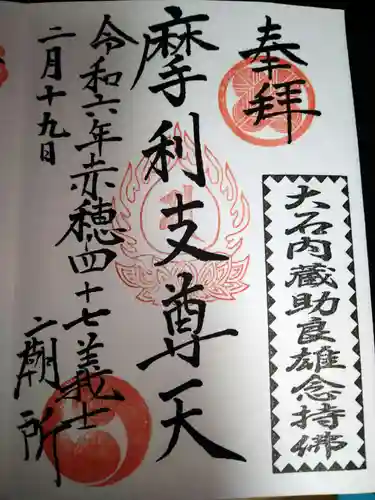 奉拝
大石内蔵助良雄念持佛
摩利支尊天
令和六年赤穂四十七義士
二月十九日
廟所